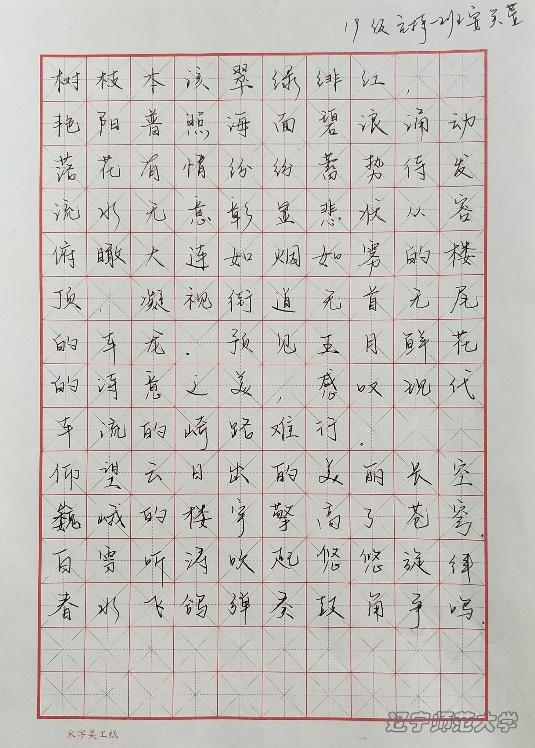 19级 一班
树枝本该翠绿绯红，
艳阳普照海面碧浪涌动
落花有情纷纷蓄势待发
流水无意彰显悲伏从容
俯瞰大连如烟如雾的楼
顶，凝视街道无首无尾
的车龙。预见五月鲜花
的诗意之美，感叹现代
车流的崎路难行。
仰望云日出的美丽长空
巍峨的楼宇擎高了苍穹。
百雪听涛吹起悠悠旋律
春水飞鸽弹奏鼓角争鸣。
辽宁师范大学
米字美工纸